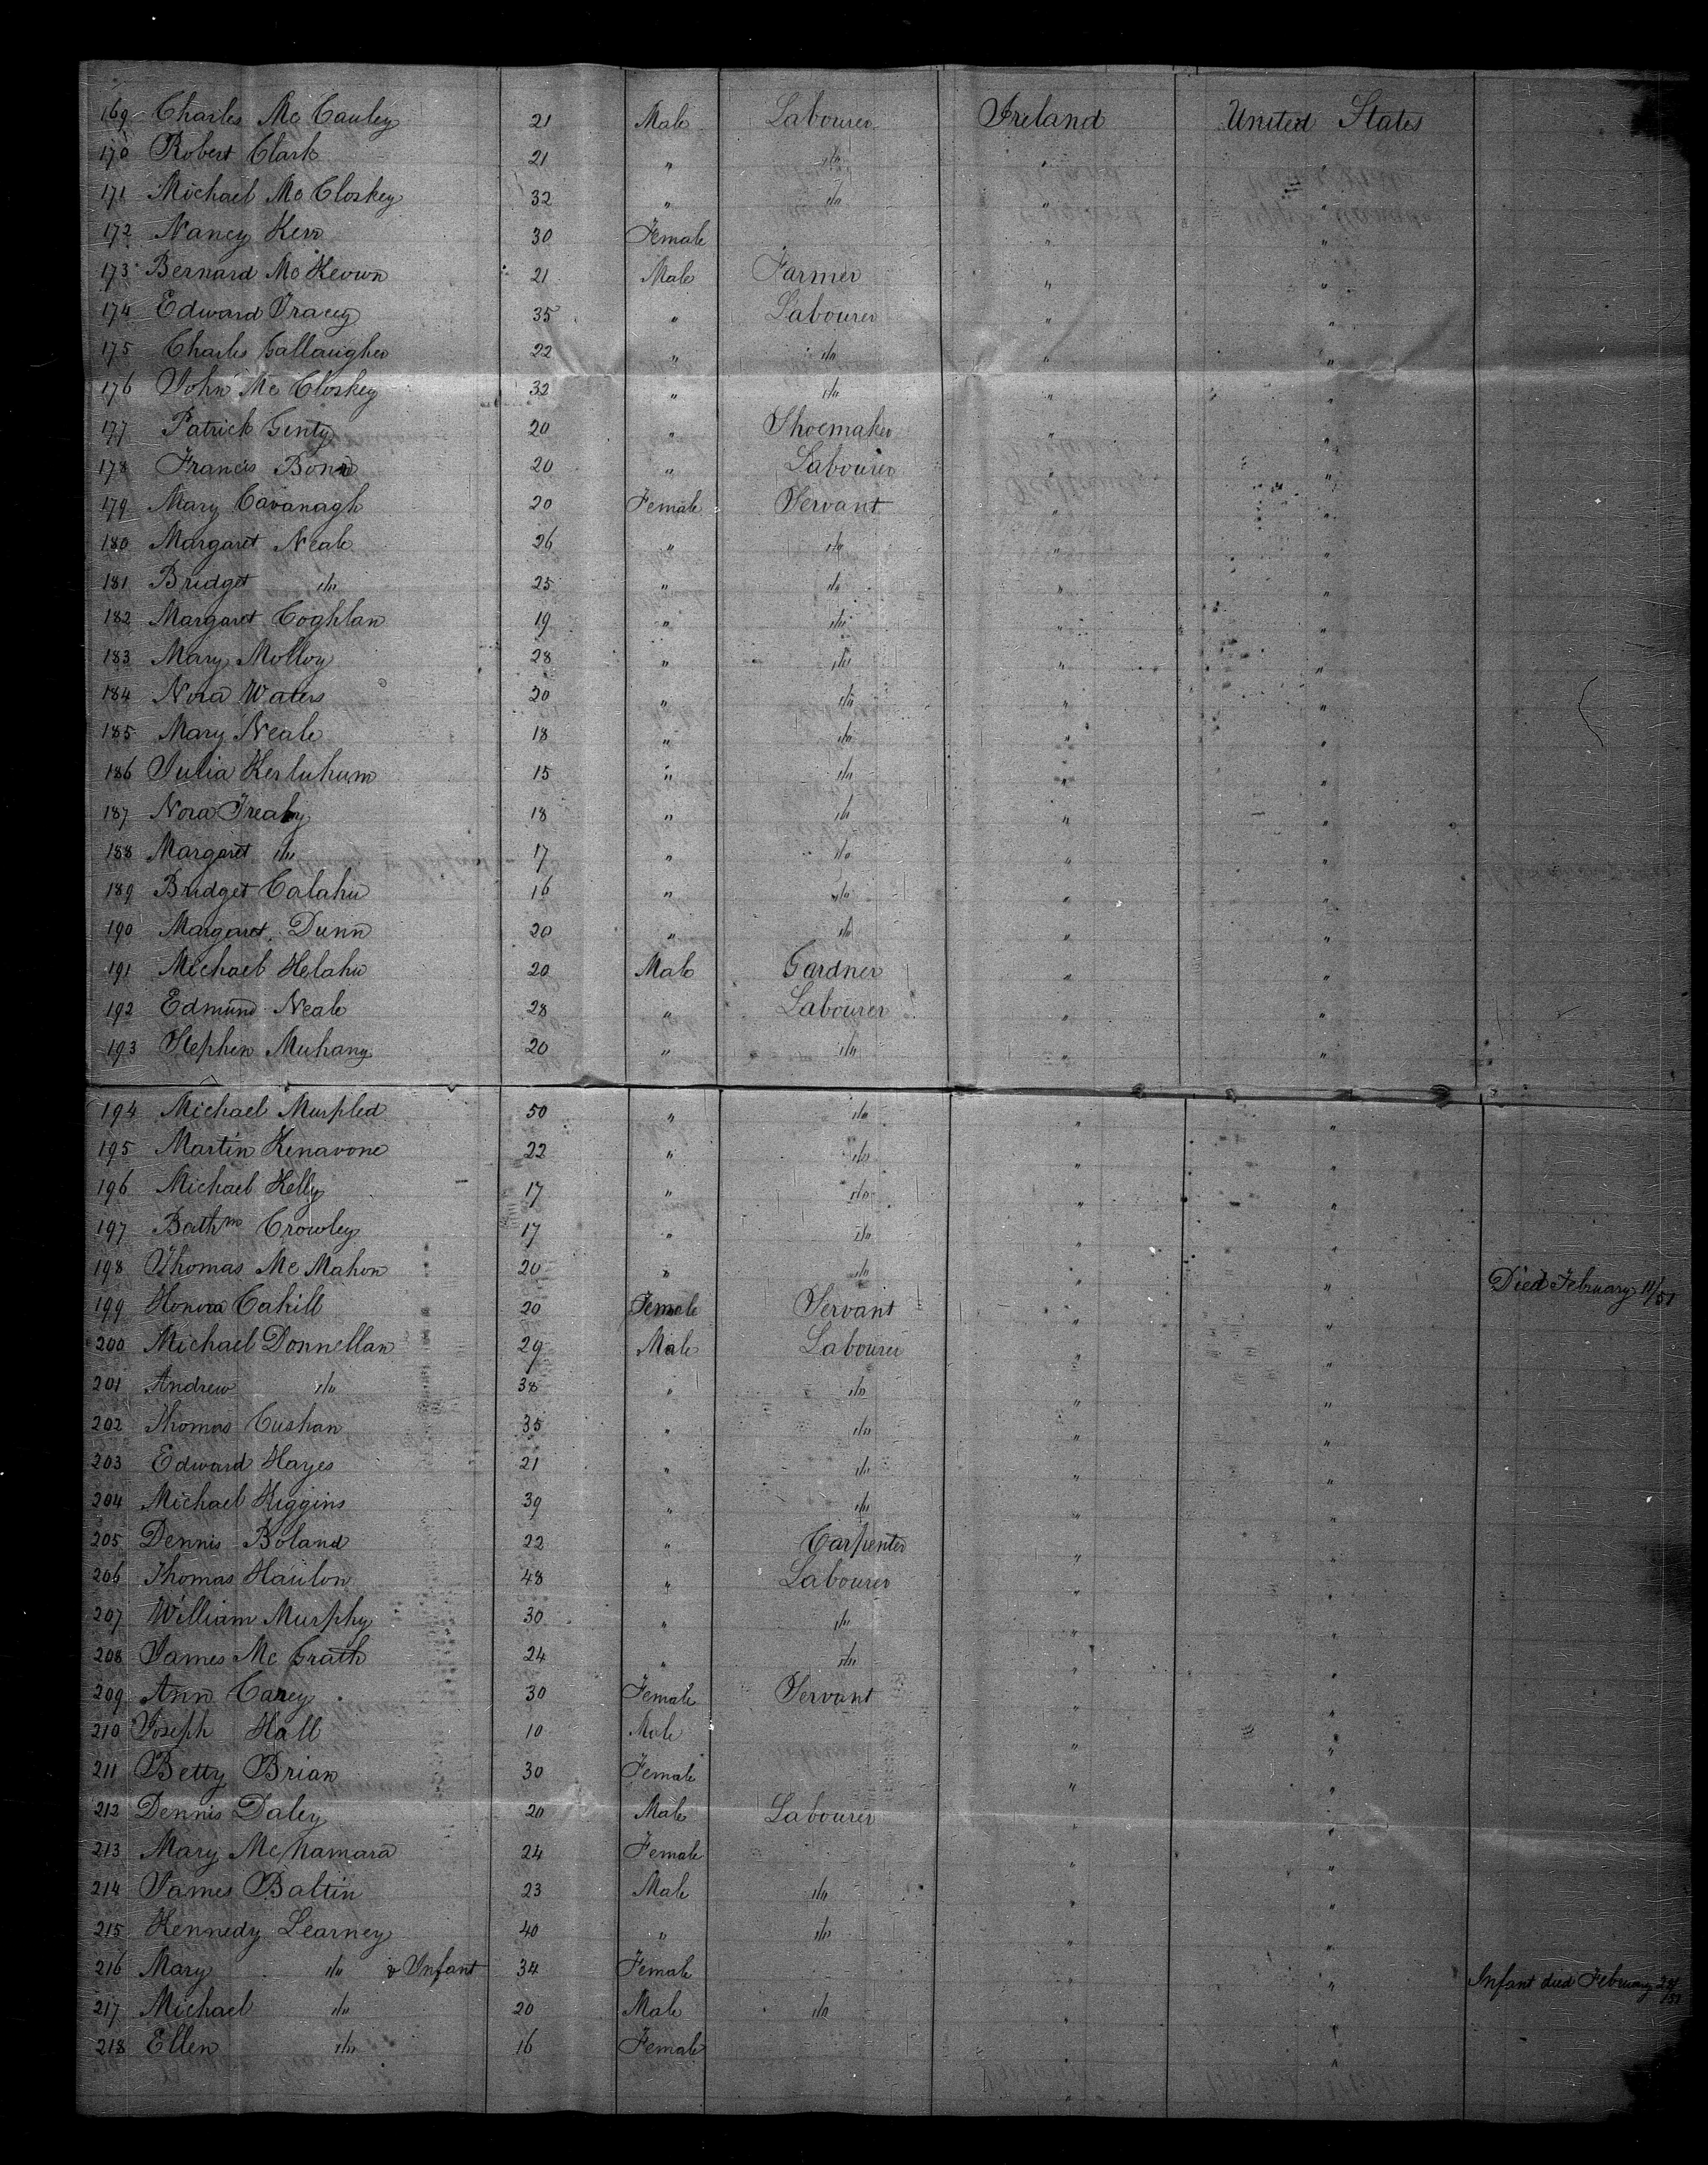 169 Charles Mc Cauley 21 Male Labourer Ireland United States
170 Robert Clark 21 " do " "
171 Michael Mc Closkey 32 " do " "
172 Nancy Kerr 30 Female " "
173 Bernard Mc Keown 21 Male Farmer " "
174 Edward Tracey 35 " Labourer " "
175 Charles Gallaugher 22 " do " "
176 John Mc Closkey 32 " do " "
177 Patrick Genty 20 " Shoemaker " "
178 Francis Bond 20 " Labourer " "
179 Mary Cavanagh 20 Female Servant " "
180 Margaret Neale 26 " do " "
181 Bridget do 25 " do " "
182 Margaret Coghlan 19 " do " "
183 Mary Molloy 28 " do " "
184 Nora Waters 20 " do " "
185 Mary Neale 18 " do " "
186 Julia Kerluhum 15 " do " "
187 Nora Trealy 18 " do " "
188 Margaret do 17 " do " "
189 Bridget Calahu 16 " do " "
190 Margaret Dunn 20 " do " "
191 Michael Helahu 20 Male Gardner " "
192 Edmund Neale 28 " Labourer " "
193 Stephen Muhany 20 " do " "
194 Michael Murpled 50 " do " "
195 Martin Kenavone 22 " do " "
196 Michael Kelly 17 " do " "
197 Bathm Crowley 17 " do " "
198 Thomas Mc Mahon 20 " do " " Died February 11/51
199 Honora Cahill 20 Female Servant " "
200 Michael Donnellan 29 Male Labourer " "
201 Andrew do 38 " do " "
202 Thomas Cushan 35 " do " "
203 Edward Hayes 21 " do " "
204 Michael Higgins 39 " do " "
205 Dennis Boland 22 " Carpenter " "
206 Thomas Haulon 48 " Labourer " "
207 William Murphy 30 " do " "
208 James Mc Grath 24 " do " "
209 Ann Carey 30 Female Servant " "
210 Joseph Hall 10 Male " "
211 Betty Brian 30 Female " "
212 Dennis Daley 20 Male Labourer " "
213 Mary McNamara 24 Female " "
214 James Baltin 23 Male do " "
215 Kennedy Learney 40 " do " "
216 Mary do & Infant 34 Female " " Infant died February
217 Michael do 20 Male do " "
218 Ellen do 16 Female " "